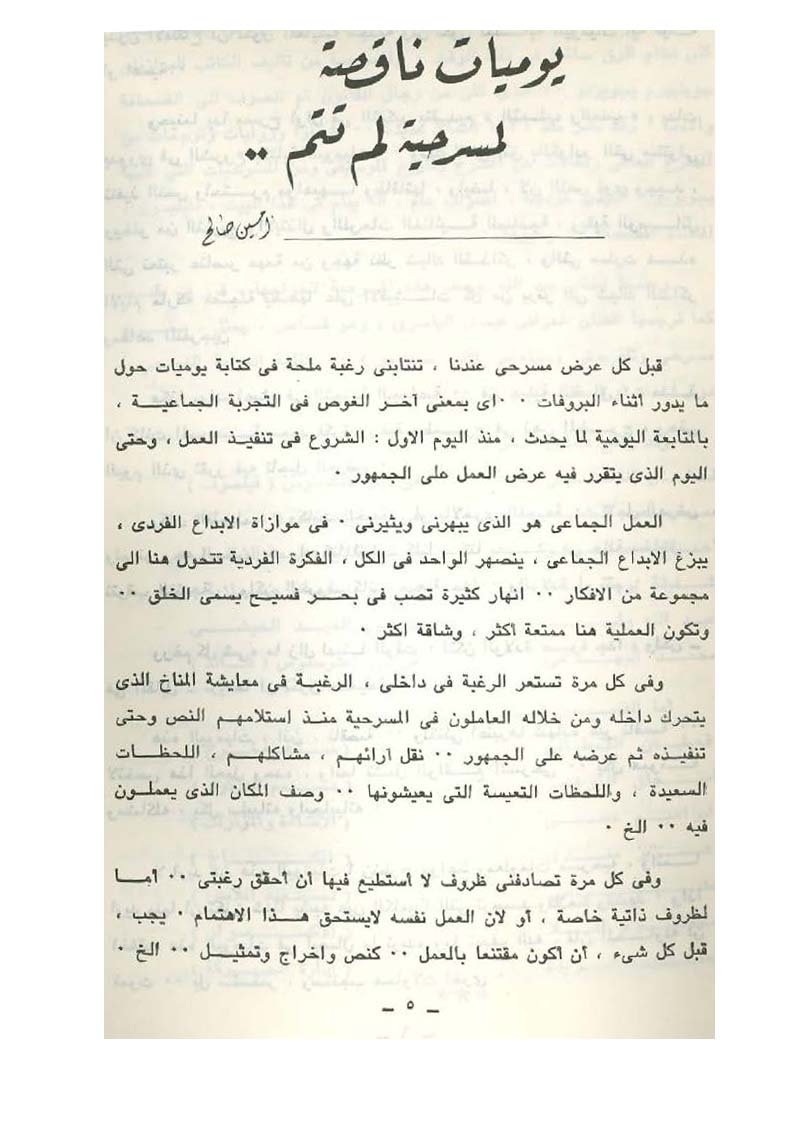 يوميات ناقصة
لمسرحية لم تتم ..
أمين صالح
قبل كل عرض مسرحى عندنا ، تنتابنى رغبة ملحة فى كتابة يوميات حول
ما يدور أثناء البروفات ٠ ٠ اى بمعنى آخر الغوص فى التجربة الجماعيــة ،
بالمتابعة اليومية لما يحدث ، منذ اليوم الاول : الشروع فى تنفيذ العمل ، وحتى
اليوم الذى يتقرر فيه عرض العمل على الجمهور ٠
العمل الجماعى هو الذى يبهرنى ويثيرنى ٠ فى موازاة الابداع الفردى ،
يبزغ الابداع الجماعى ، ينصهر الواحد فى الكل ، الفكرة الفردية تتحول هنا الى
مجموعة من الافكار ٠٠ انهار كثيرة تصب فى بحــر فسيــح يسمى الخلق ٠٠
وتكون العملية هنا ممتعة أكثر ، وشاقة اكثر ٠
وفى كل مرة تستعر الرغبة فى داخلى ، الرغبــة فى معايشة المناخ الذى
يتحرك داخله ومن خلاله العاملون فى المسرحية منــذ استلامهــم النص وحتى
تنفيــذه ثم عرضه على الجمهور ٠٠ نقل آرائهــم ، مشاكلهــم ، اللحظــات
السعيدة ، واللحظات التعيسة التى يعيشونها ٠٠ وصف المكان الذى يعملــون
فيه ٠٠ الخ ٠
وفى كل مرة تصادفنى ظروف لا أستطيع فيها أن أحقق رغبتى ٠٠ أمــا
لظروف ذاتية خاصة ، أو لان العمل نفسه لايستحق هــذا الاهتمام ٠ يجب ،
قبل كل شىء ، أن أكون مقتنعا بالعمل ٠٠ كنص واخراج وتمثيــل ٠٠ الخ ٠
ــ ٥ ــ